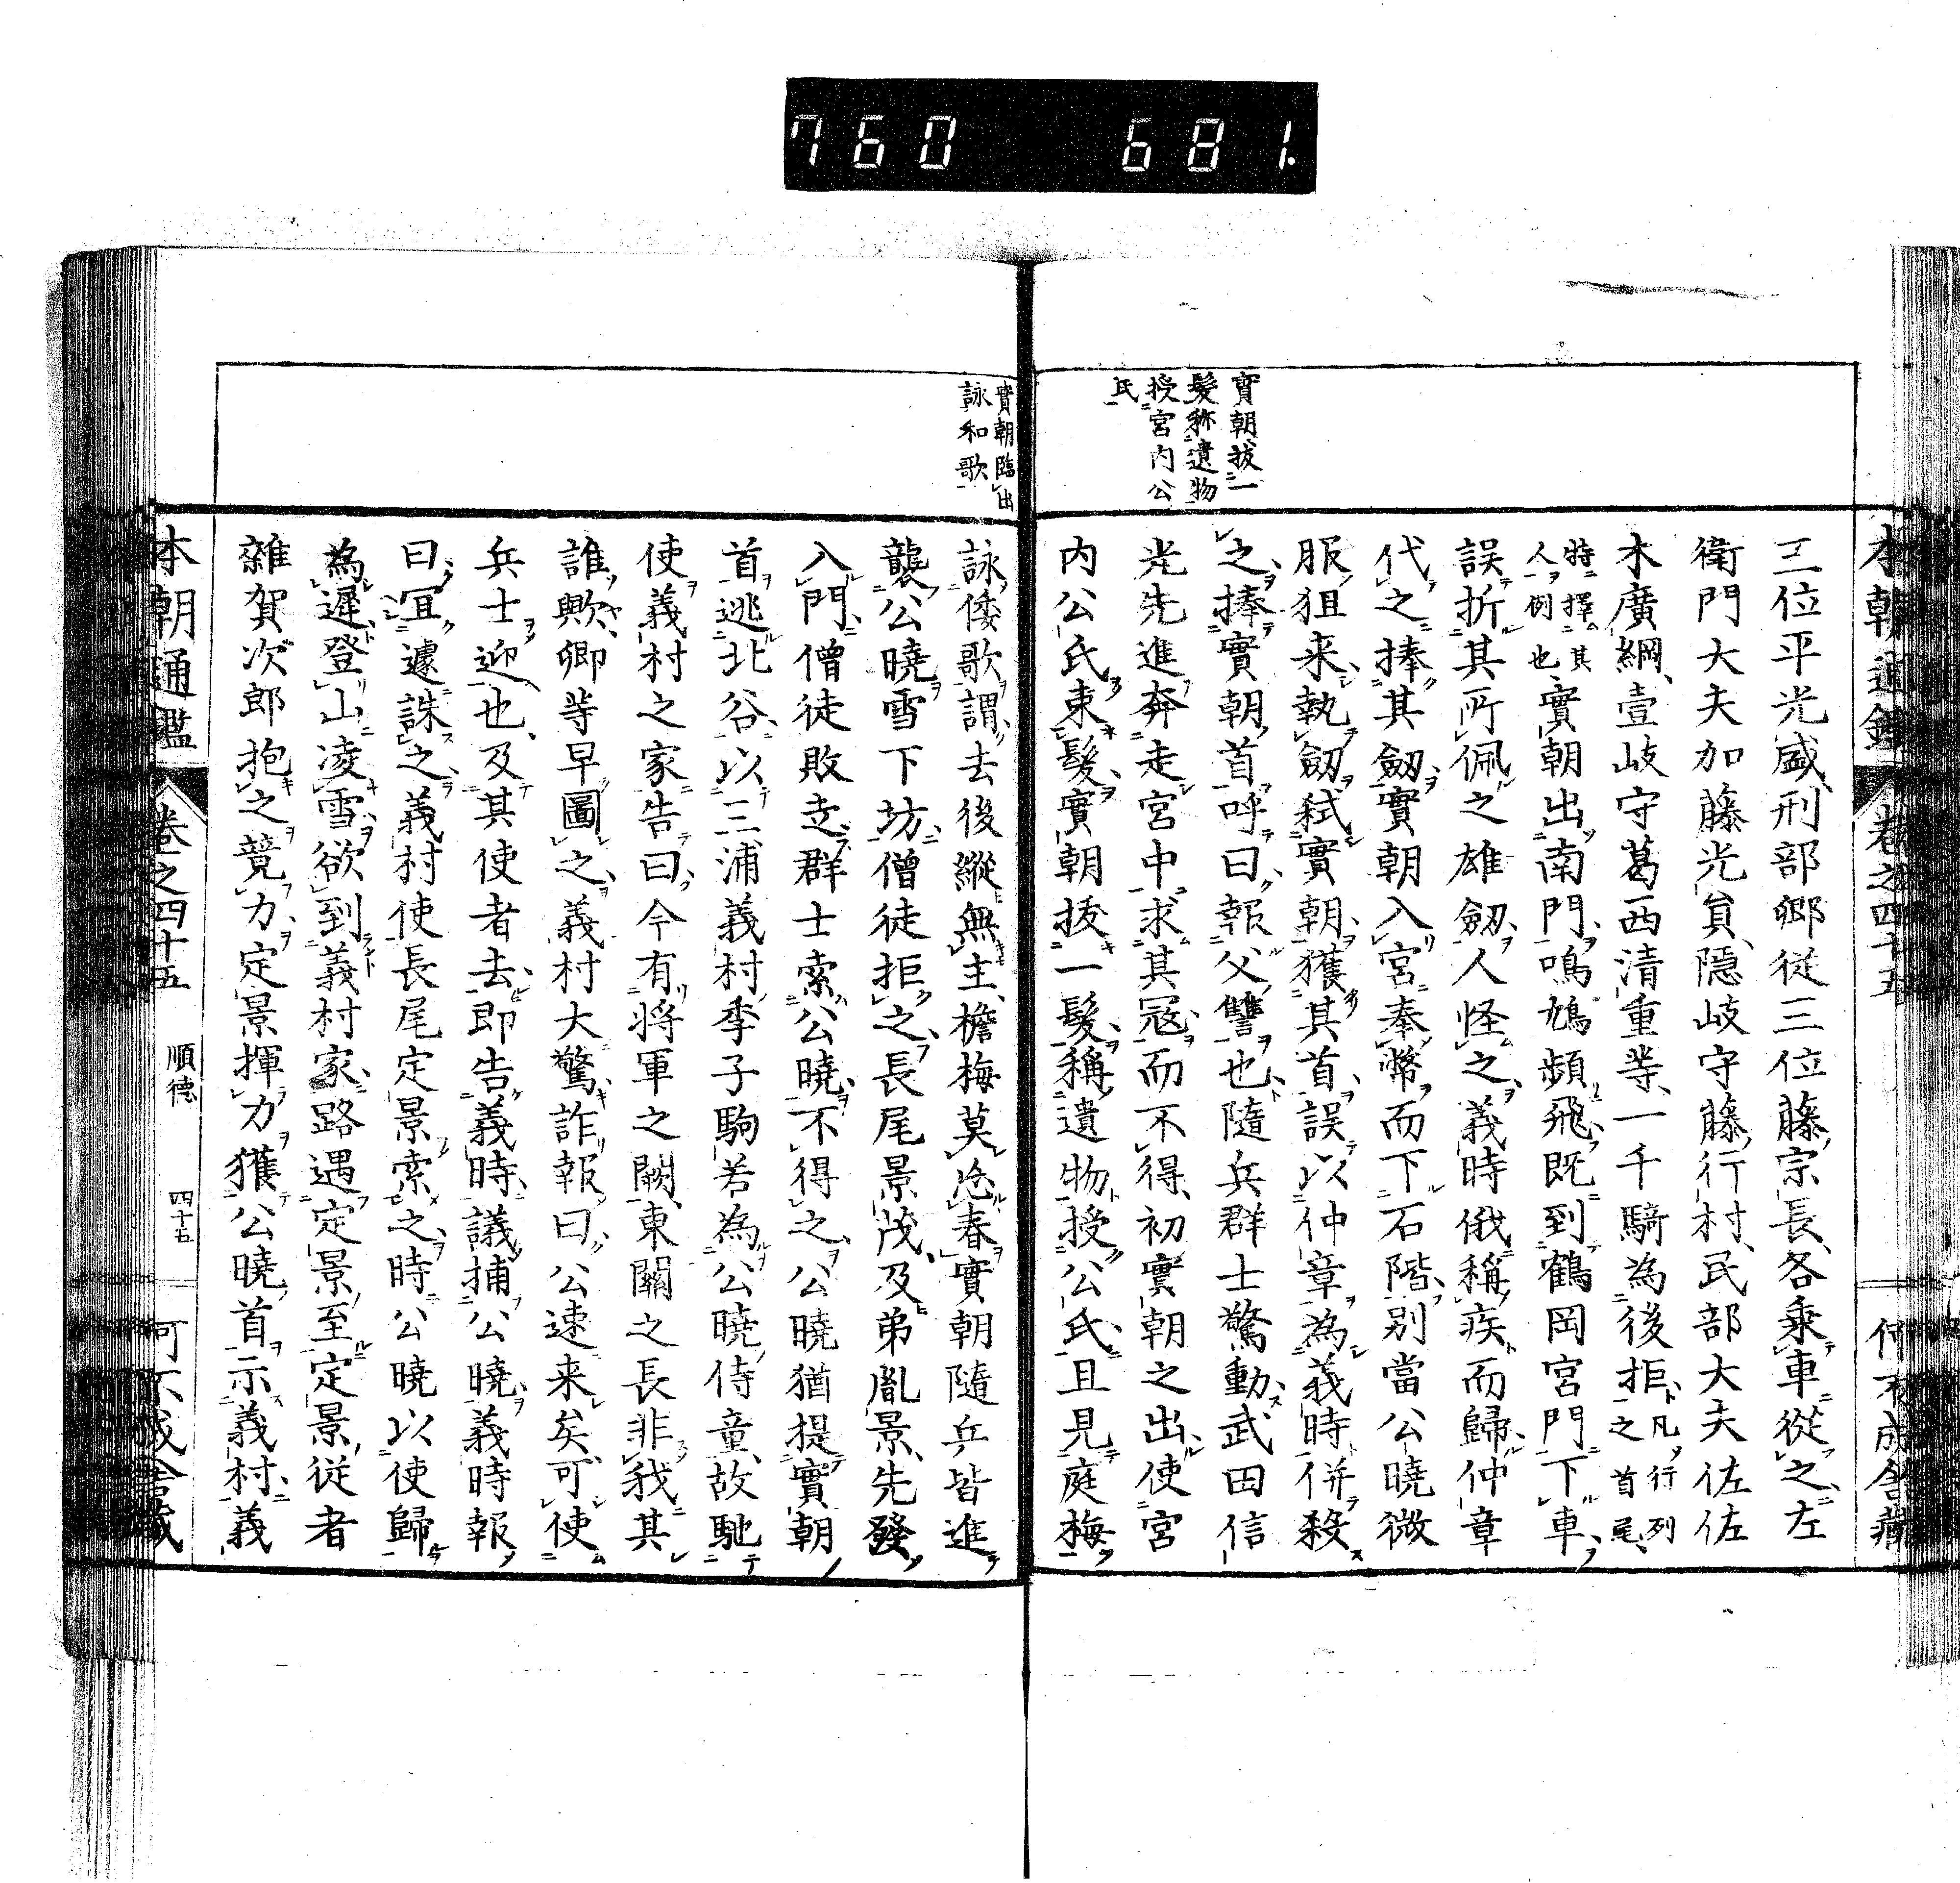 760 681.
本朝通鑑 卷之四十五 何不成舍藏
實朝拔一
髮稱遺物
授宮内公
氏
三位平光盛刑部卿從三位藤宗長各乘車從之左
衛門大夫加藤光員隱岐守藤行村民部大夫佐佐
木廣綱壹岐守葛西清重等一千騎為後拒凡行列之首尾
特擇其人例也實朝出南門鳴鳩頻飛既到鶴岡宮門下車
誤折其所佩之雄劔人怪之義時俄稱疾而歸仲章
代之捧其劔實朝入宮奉幣而下石階別當公曉微
服狙来執劔弑實朝獲其首誤以仲章為義時併殺
之捧實朝首呼曰報父讐也隨兵群士驚動武田信
光先進奔走宮中求其冦而不得初實朝之出使宮
内公氏束髮實朝拔一髮稱遺物授公氏且見庭梅
實朝臨出
詠和歌
詠倭歌謂去後縱無主檐梅莫忘春實朝隨兵皆進
襲公曉雪下坊僧徒拒之長尾景茂及弟胤景先發
入門僧徒敗走群士索公曉不得之公曉猶提實朝
首逃北谷以三浦義村季子駒若為公曉侍童故馳
使義村之家告曰今有将軍之闕東關之長非我其
誰歟卿等早圖之義村大驚詐報曰公速来矣可使
兵士迎也及其使者去即告義時議捕公曉義時報
曰宜遽誅之義村使長尾定景索之時公曉以使歸
為遲登山凌雪欲到義村家路遇定景至定景從者
雜賀次郎抱之競力定景揮力獲公曉首示義村義
本朝通鑑 卷之四十五 順德 四十五 何不成舍藏